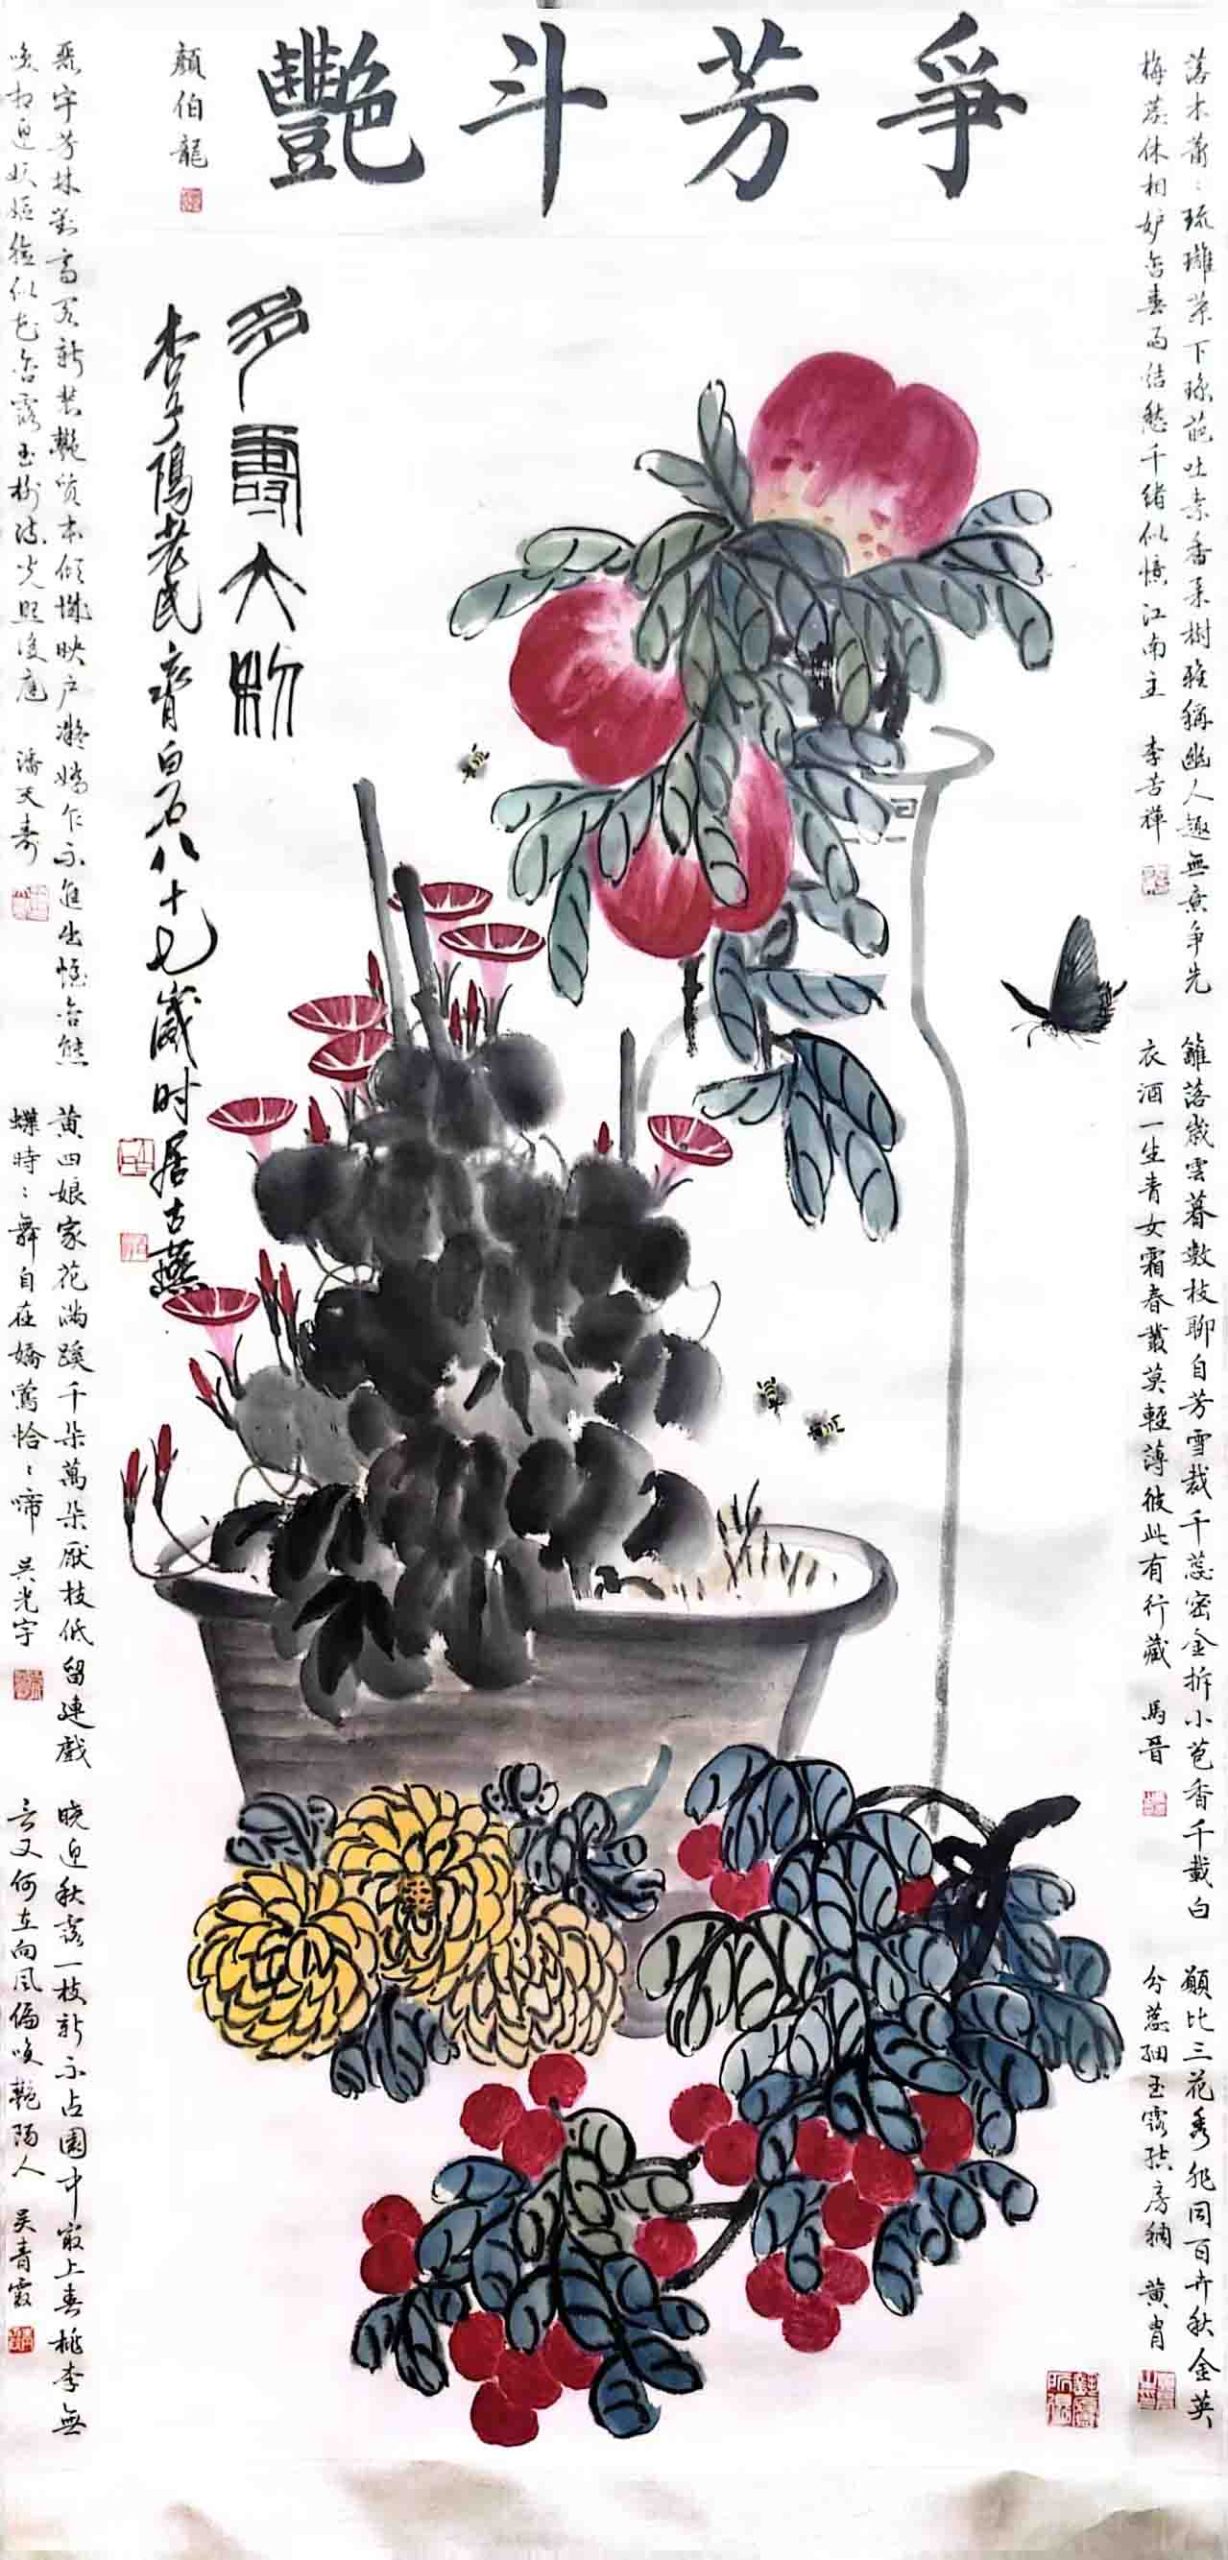 爭芳斗艷
顏伯龍
多壽大利
杏子隝老民齊白石八十七歲时居古燕
落木蕭〻琉璃葉下瓊葩吐素香柔樹雅稱幽人趣無意爭先
梅蕊休相妒含春雨結愁千緒似憶江南主 李苦禪
籬落歲雲暮數枝聊自芳雪裁千蕊密金拆小苞香千載白
衣酒一生青女霜春叢莫輕薄彼此有行藏 馬晉
願比三花秀非同百卉秋金英
分蕊細玉露結房稠 黃胄
麗宇芳林對高閣新裝艷質本傾城映戶凝嬌乍不進出帷含態
笑相迎妖姬臉似花含露玉樹流光照後庭 潘天壽
黃四娘家花滿蹊千朵萬朵壓枝低留連戲
蝶時〻舞自在嬌鶯恰〻啼 吳光宇
曉迎秋露一枝新不占園中最上春桃李無
言又何在向風偏笑艷陽人 吳青霞